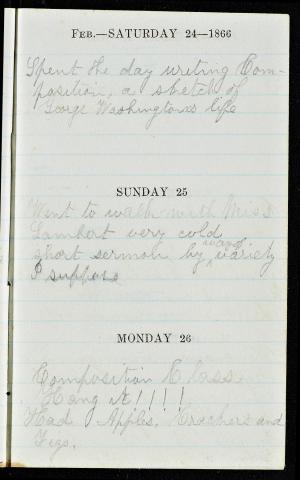 FEB.—SATURDAY 24—1866
Spent the day writing Com-
position, a sketch of
George Washington's life
SUNDAY 25
Went to walk with Miss
Lambert very cold
short sermon by way of variety
I suppose
MONDAY 26
Composition Class.
Hang it!!!!
Had Apples, Krackers and
Figs.